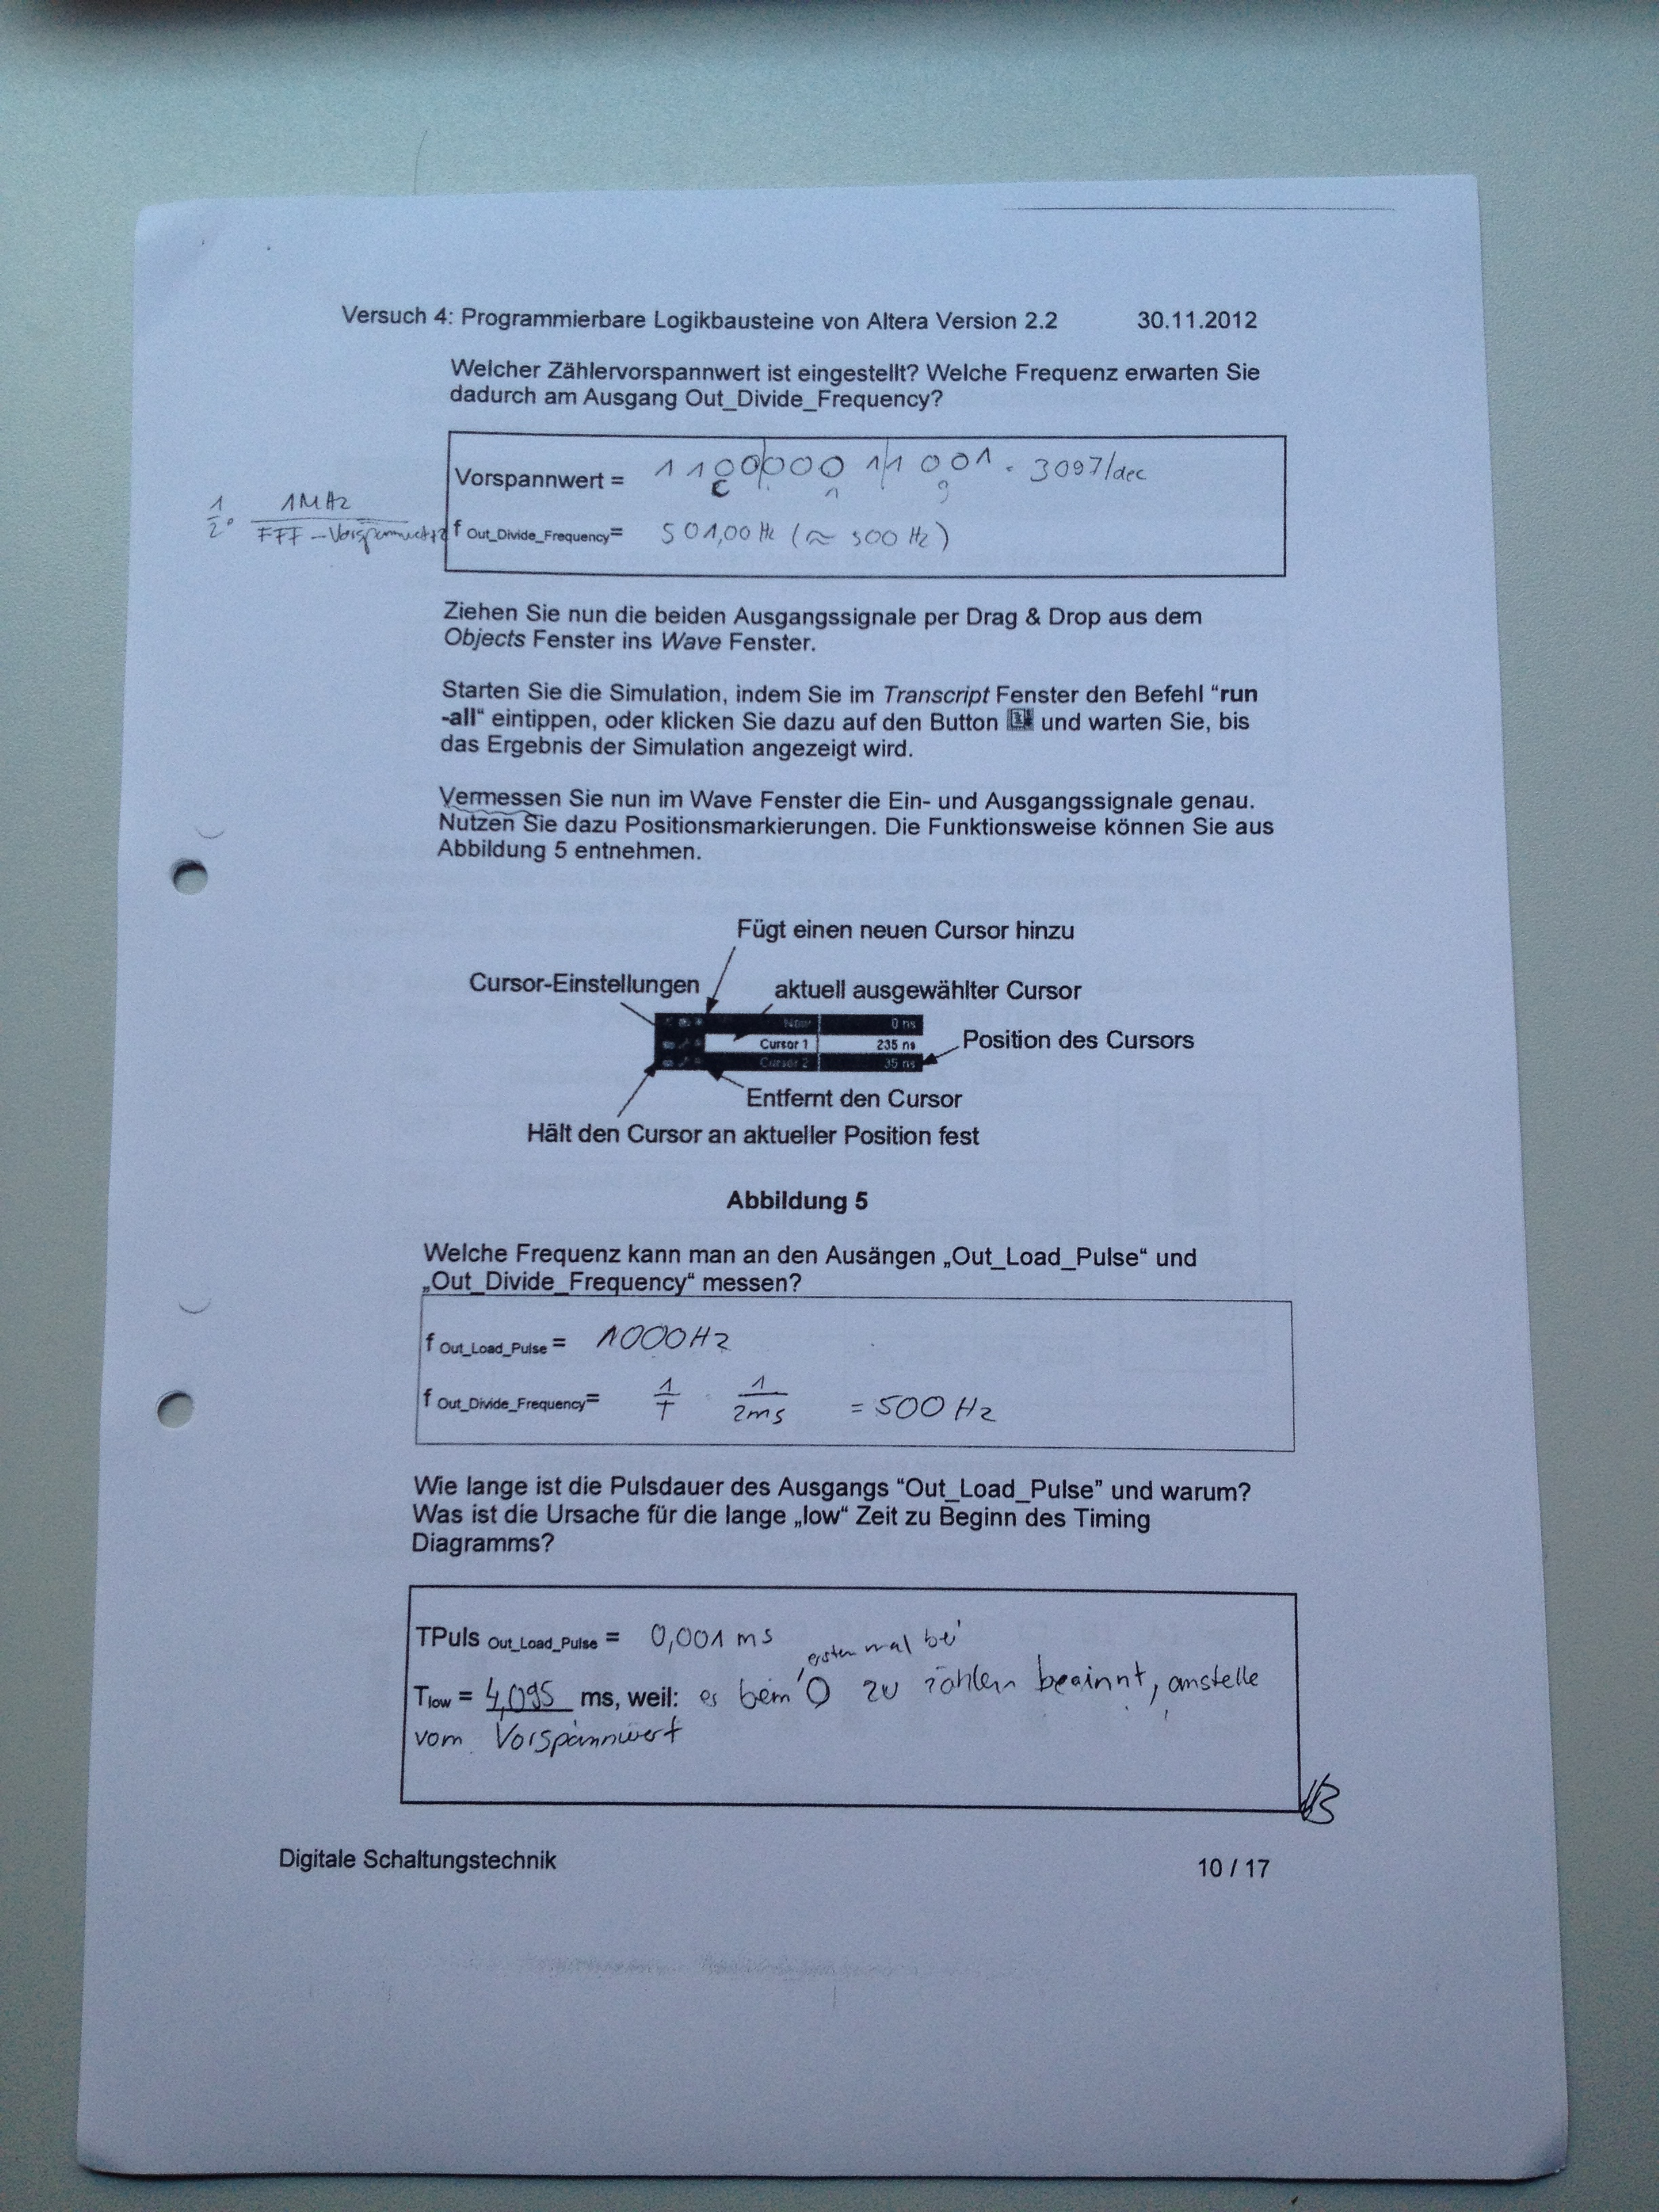 Versuch 4: Programmierbare Logikbausteine von Altera Version 2.2 30.11.2012
Welcher Zählervorspannwert ist eingestellt? Welche Frequenz erwarten Sie
dadurch am Ausgang Out_Divide_Frequency?
Vorspannwert = 1100000 11001 . 3097/dec
C 1 9
1/2 . 1MHz / FFF - Vorspannwert+2
f Out_Divide_Frequency= 501,00 Hz (≈ 500 Hz)
Ziehen Sie nun die beiden Ausgangssignale per Drag & Drop aus dem
Objects Fenster ins Wave Fenster.
Starten Sie die Simulation, indem Sie im Transcript Fenster den Befehl "run
-all" eintippen, oder klicken Sie dazu auf den Button und warten Sie, bis
das Ergebnis der Simulation angezeigt wird.
Vermessen Sie nun im Wave Fenster die Ein- und Ausgangssignale genau.
Nutzen Sie dazu Positionsmarkierungen. Die Funktionsweise können Sie aus
Abbildung 5 entnehmen.
Fügt einen neuen Cursor hinzu
Cursor-Einstellungen
aktuell ausgewählter Cursor
Now 0 ns
Cursor 1 235 ns
Cursor 2 35 ns
Position des Cursors
Entfernt den Cursor
Hält den Cursor an aktueller Position fest
Abbildung 5
Welche Frequenz kann man an den Ausängen „Out_Load_Pulse“ und
„Out_Divide_Frequency“ messen?
f Out_Load_Pulse = 1000Hz
f Out_Divide_Frequency= 1/T 1/2ms = 500 Hz
Wie lange ist die Pulsdauer des Ausgangs "Out_Load_Pulse" und warum?
Was ist die Ursache für die lange „low“ Zeit zu Beginn des Timing
Diagramms?
TPuls Out_Load_Pulse = 0,001 ms
ersten mal bei
Tlow = 4,095 ms, weil: es beim 0 zu zählen beginnt, anstelle
vom Vorspannwert
Digitale Schaltungstechnik
10 / 17